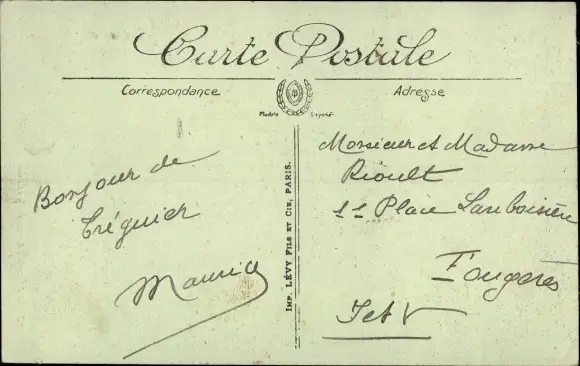 Carte Postale
Correspondance
Adresse
Modèle Déposé
Bonjour de
Tréguier
Maurice
IMP. LÉVY FILS ET CIE, PARIS.
Monsieur et Madame
Rioult
11 Place Lariboisière
Fougères
I et V